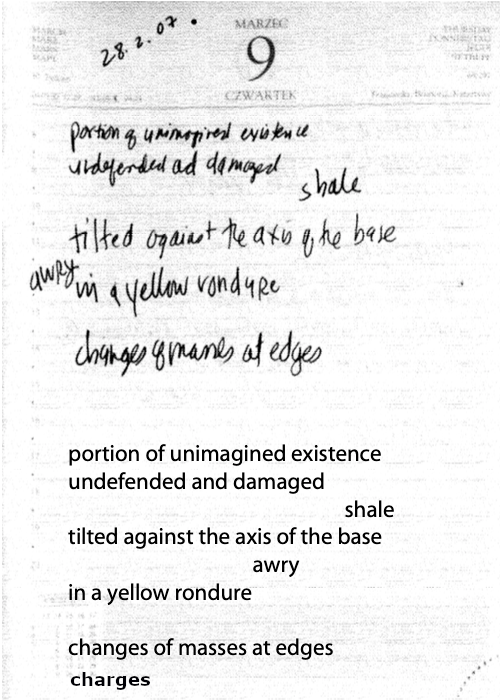 28.2.07.
MARZEC
9
CZWARTEK
THURSDAY
portion of unimagined existence
undefended ad damaged
shale
tilted against the axis of the base
awry
in a yellow rondure
changes of masses at edges
portion of unimagined existence
undefended and damaged
shale
tilted against the axis of the base
awry
in a yellow rondure
changes of masses at edges
charges